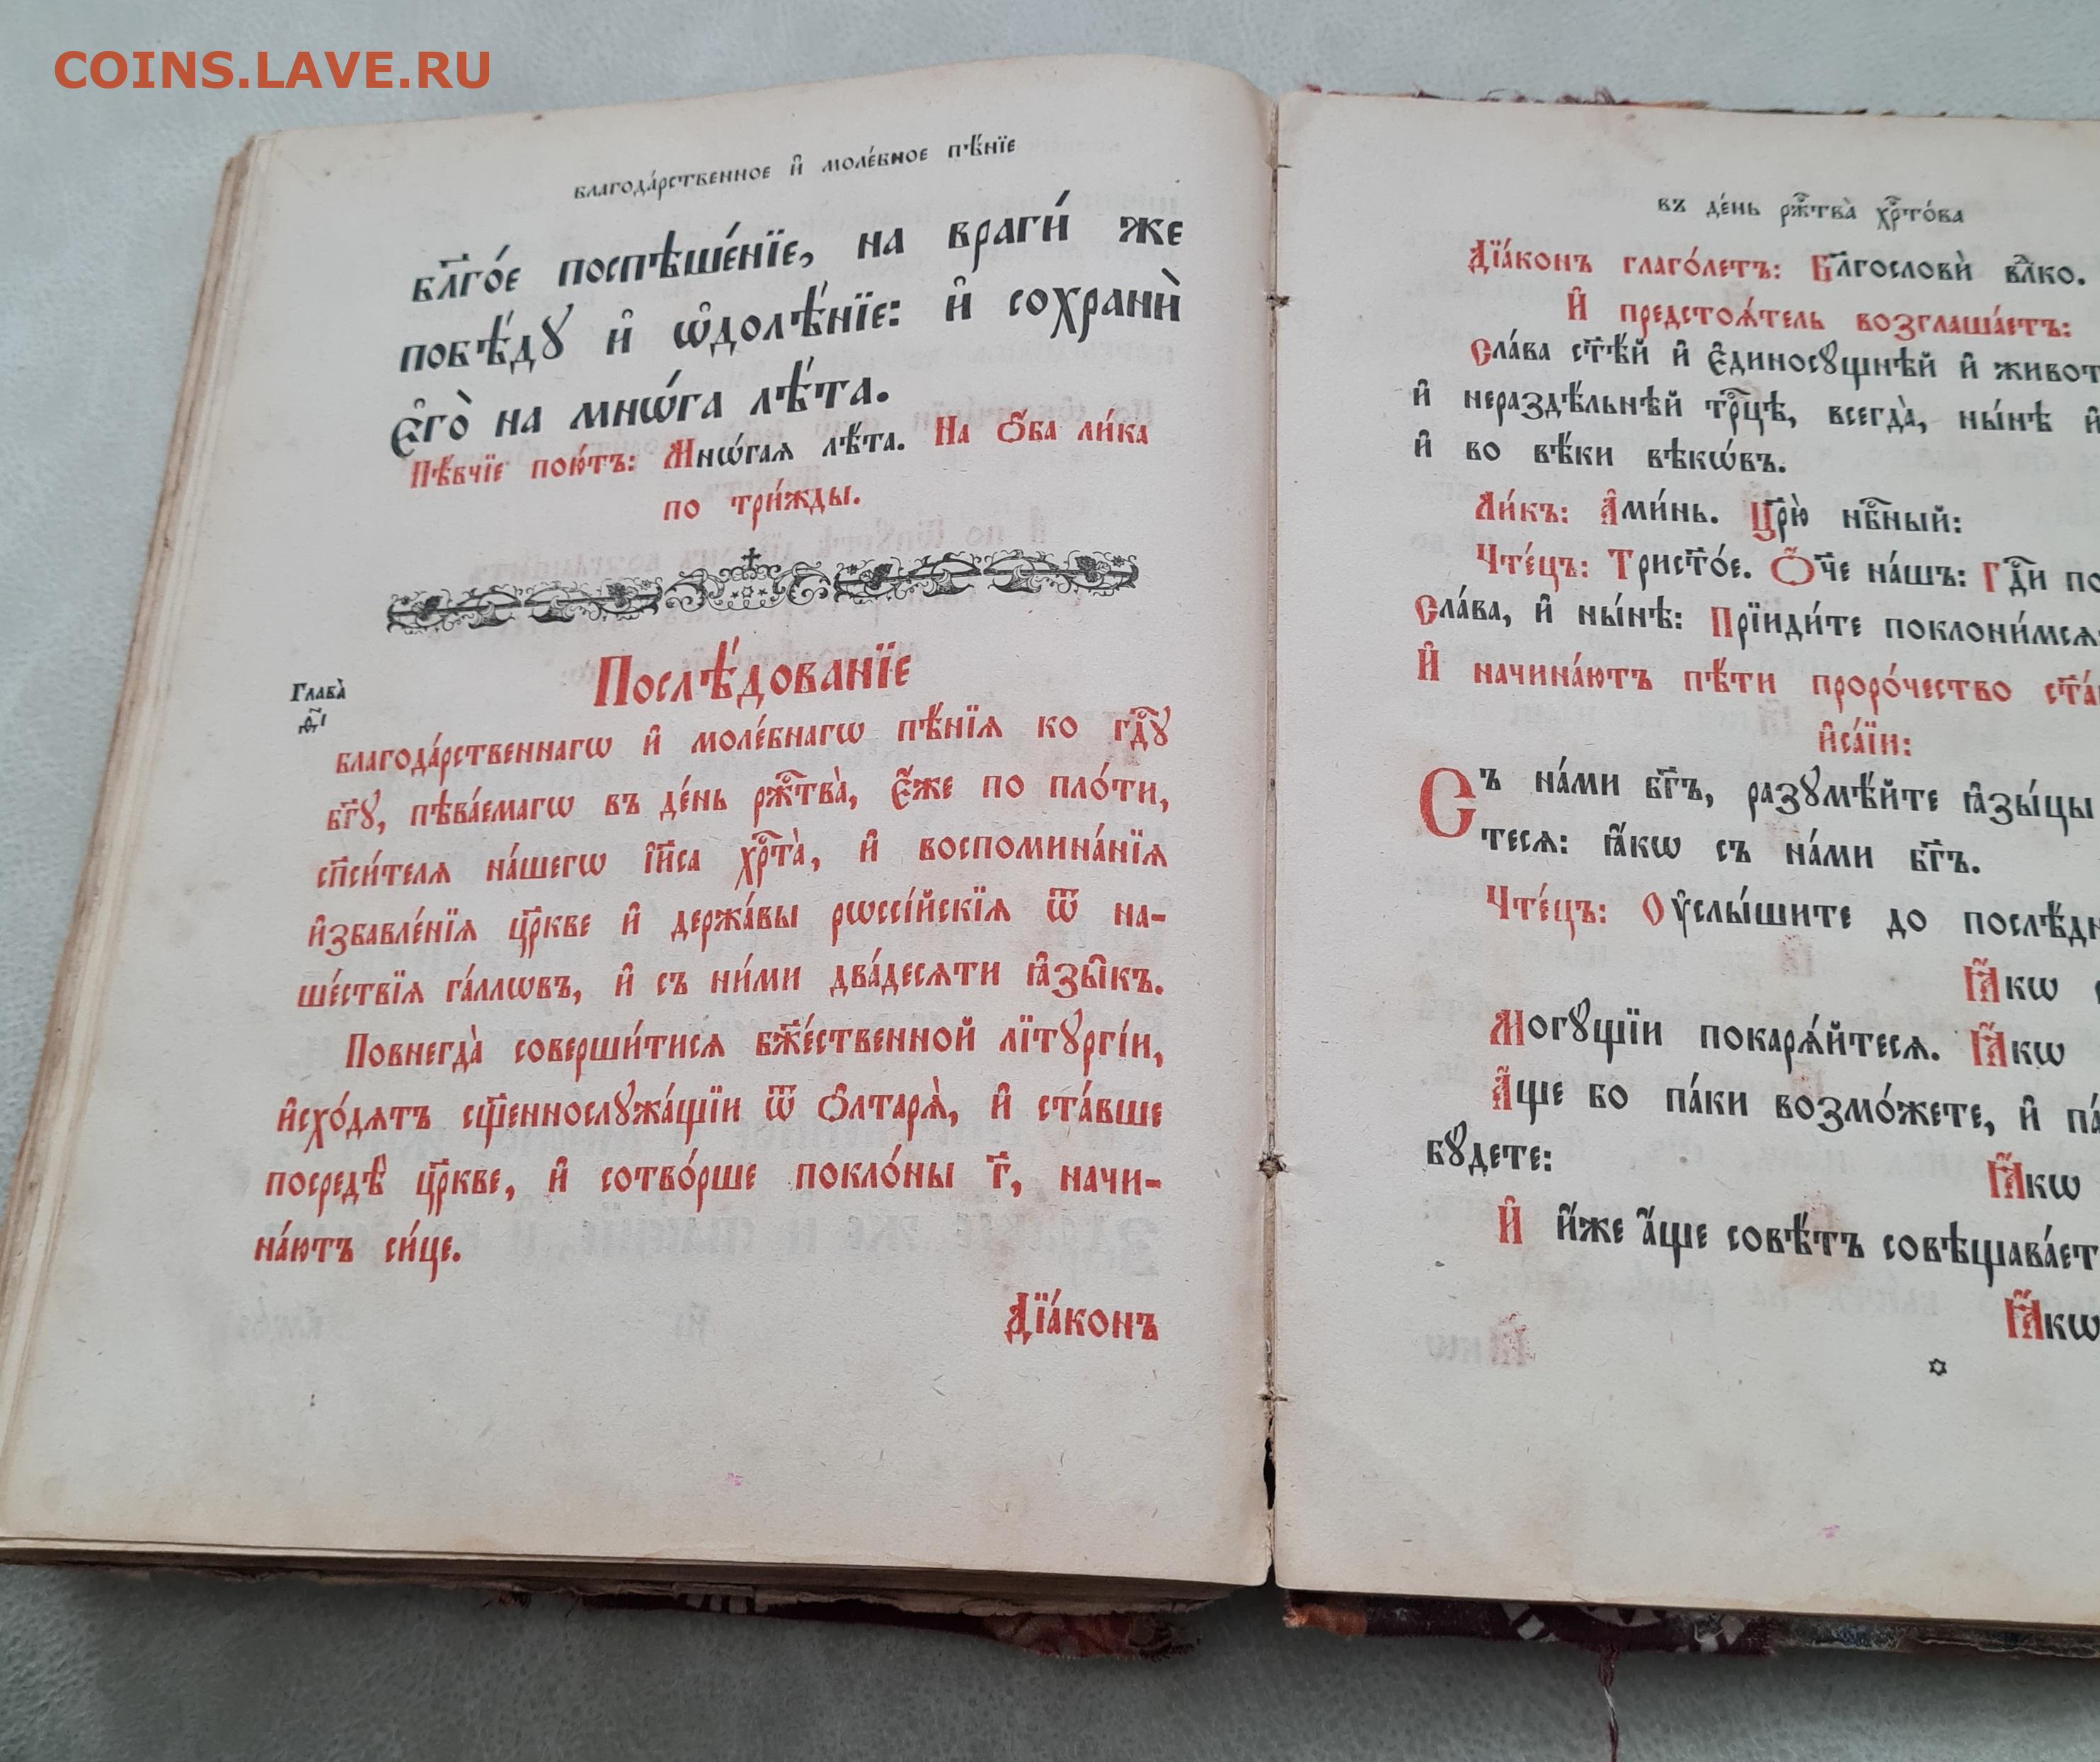 COINS.LAVE.RU
благода́рственное и҆ моле́бное пѣ́нїе
бл҃го́е поспѣше́нїе, на враги́ же
побѣ́дꙋ и҆ ѡ҆долѣ́нїе: и҆ сохранѝ
є҆го̀ на мнѡ́га лѣ́та.
Пѣ́вчїе пою́тъ: Мнѡ́гаѧ лѣ́та. На ѻ҆́ба ли́ка
по три́жды.
Послѣ́дованїе
Глава̀
благода́рственнагѡ и҆ моле́бнагѡ пѣ́нїѧ ко гдⷭ҇ꙋ
бг҃ꙋ, пѣва́емагѡ въ де́нь ржⷭ҇тва̀, є҆́же по пло́ти,
сп҃си́телѧ на́шегѡ і҆и҃са хрⷭ҇та̀, и҆ воспомина́нїѧ
и҆збавле́нїѧ цр҃кве и҆ держа́вы рѡссі́йскїѧ ѿ на-
ше́ствїѧ га́ллѡвъ, и҆ съ ни́ми два́десѧти ꙗ҆зы̑къ.
Повнегда̀ соверши́тисѧ бж҃е́ственной лїтꙋргі́и,
и҆схо́дѧтъ сщ҃еннослꙋжа́щїи ѿ ѻ҆лтарѧ̀, и҆ ста́вше
посредѣ̀ цр҃кве, и҆ сотво́рше покло́ны г҃, начи-
на́ютъ си́це.
Дїа́конъ
въ де́нь ржⷭ҇тва̀ хрⷭ҇то́ва
Дїа́конъ глаго́летъ: Бл҃гословѝ влⷣко.
И҆ предстоѧ́тель возглаша́етъ:
Сла́ва ст҃ѣ́й и҆ є҆диносꙋщнѣй и҆ живот
и҆ нераздѣ́льнѣй трⷪ҇цѣ, всегда̀, ны́нѣ и҆
и҆ во вѣ́ки вѣкѡ́въ.
Ли́къ: А҆ми́нь. Цр҃ю̀ нбⷭ҇ный:
Чте́цъ: Трист҃о́е. Ѻ҆́ч҃е на́шъ: Гдⷭ҇и по
Сла́ва, и҆ ны́нѣ: Прїиди́те поклони́мсѧ
И҆ начина́ютъ пѣ́ти проро́чество ст҃а́
и҆са́їи:
Съ на́ми бг҃ъ, разꙋмѣ́йте ꙗ҆зы́цы
тесѧ: ꙗ҆́кѡ съ на́ми бг҃ъ.
Чте́цъ: Оу҆слы́шите до послѣ́дн
Ꙗ҆́кѡ с
Могꙋщїи покарѧ́йтесѧ. Ꙗ҆́кѡ
А҆́ще бо па́ки возмо́жете, и҆ па́
бꙋдете:
Ꙗ҆́кѡ
И҆ и҆́же а҆́ще совѣ́тъ совѣщава́ет
Ꙗ҆́кѡ